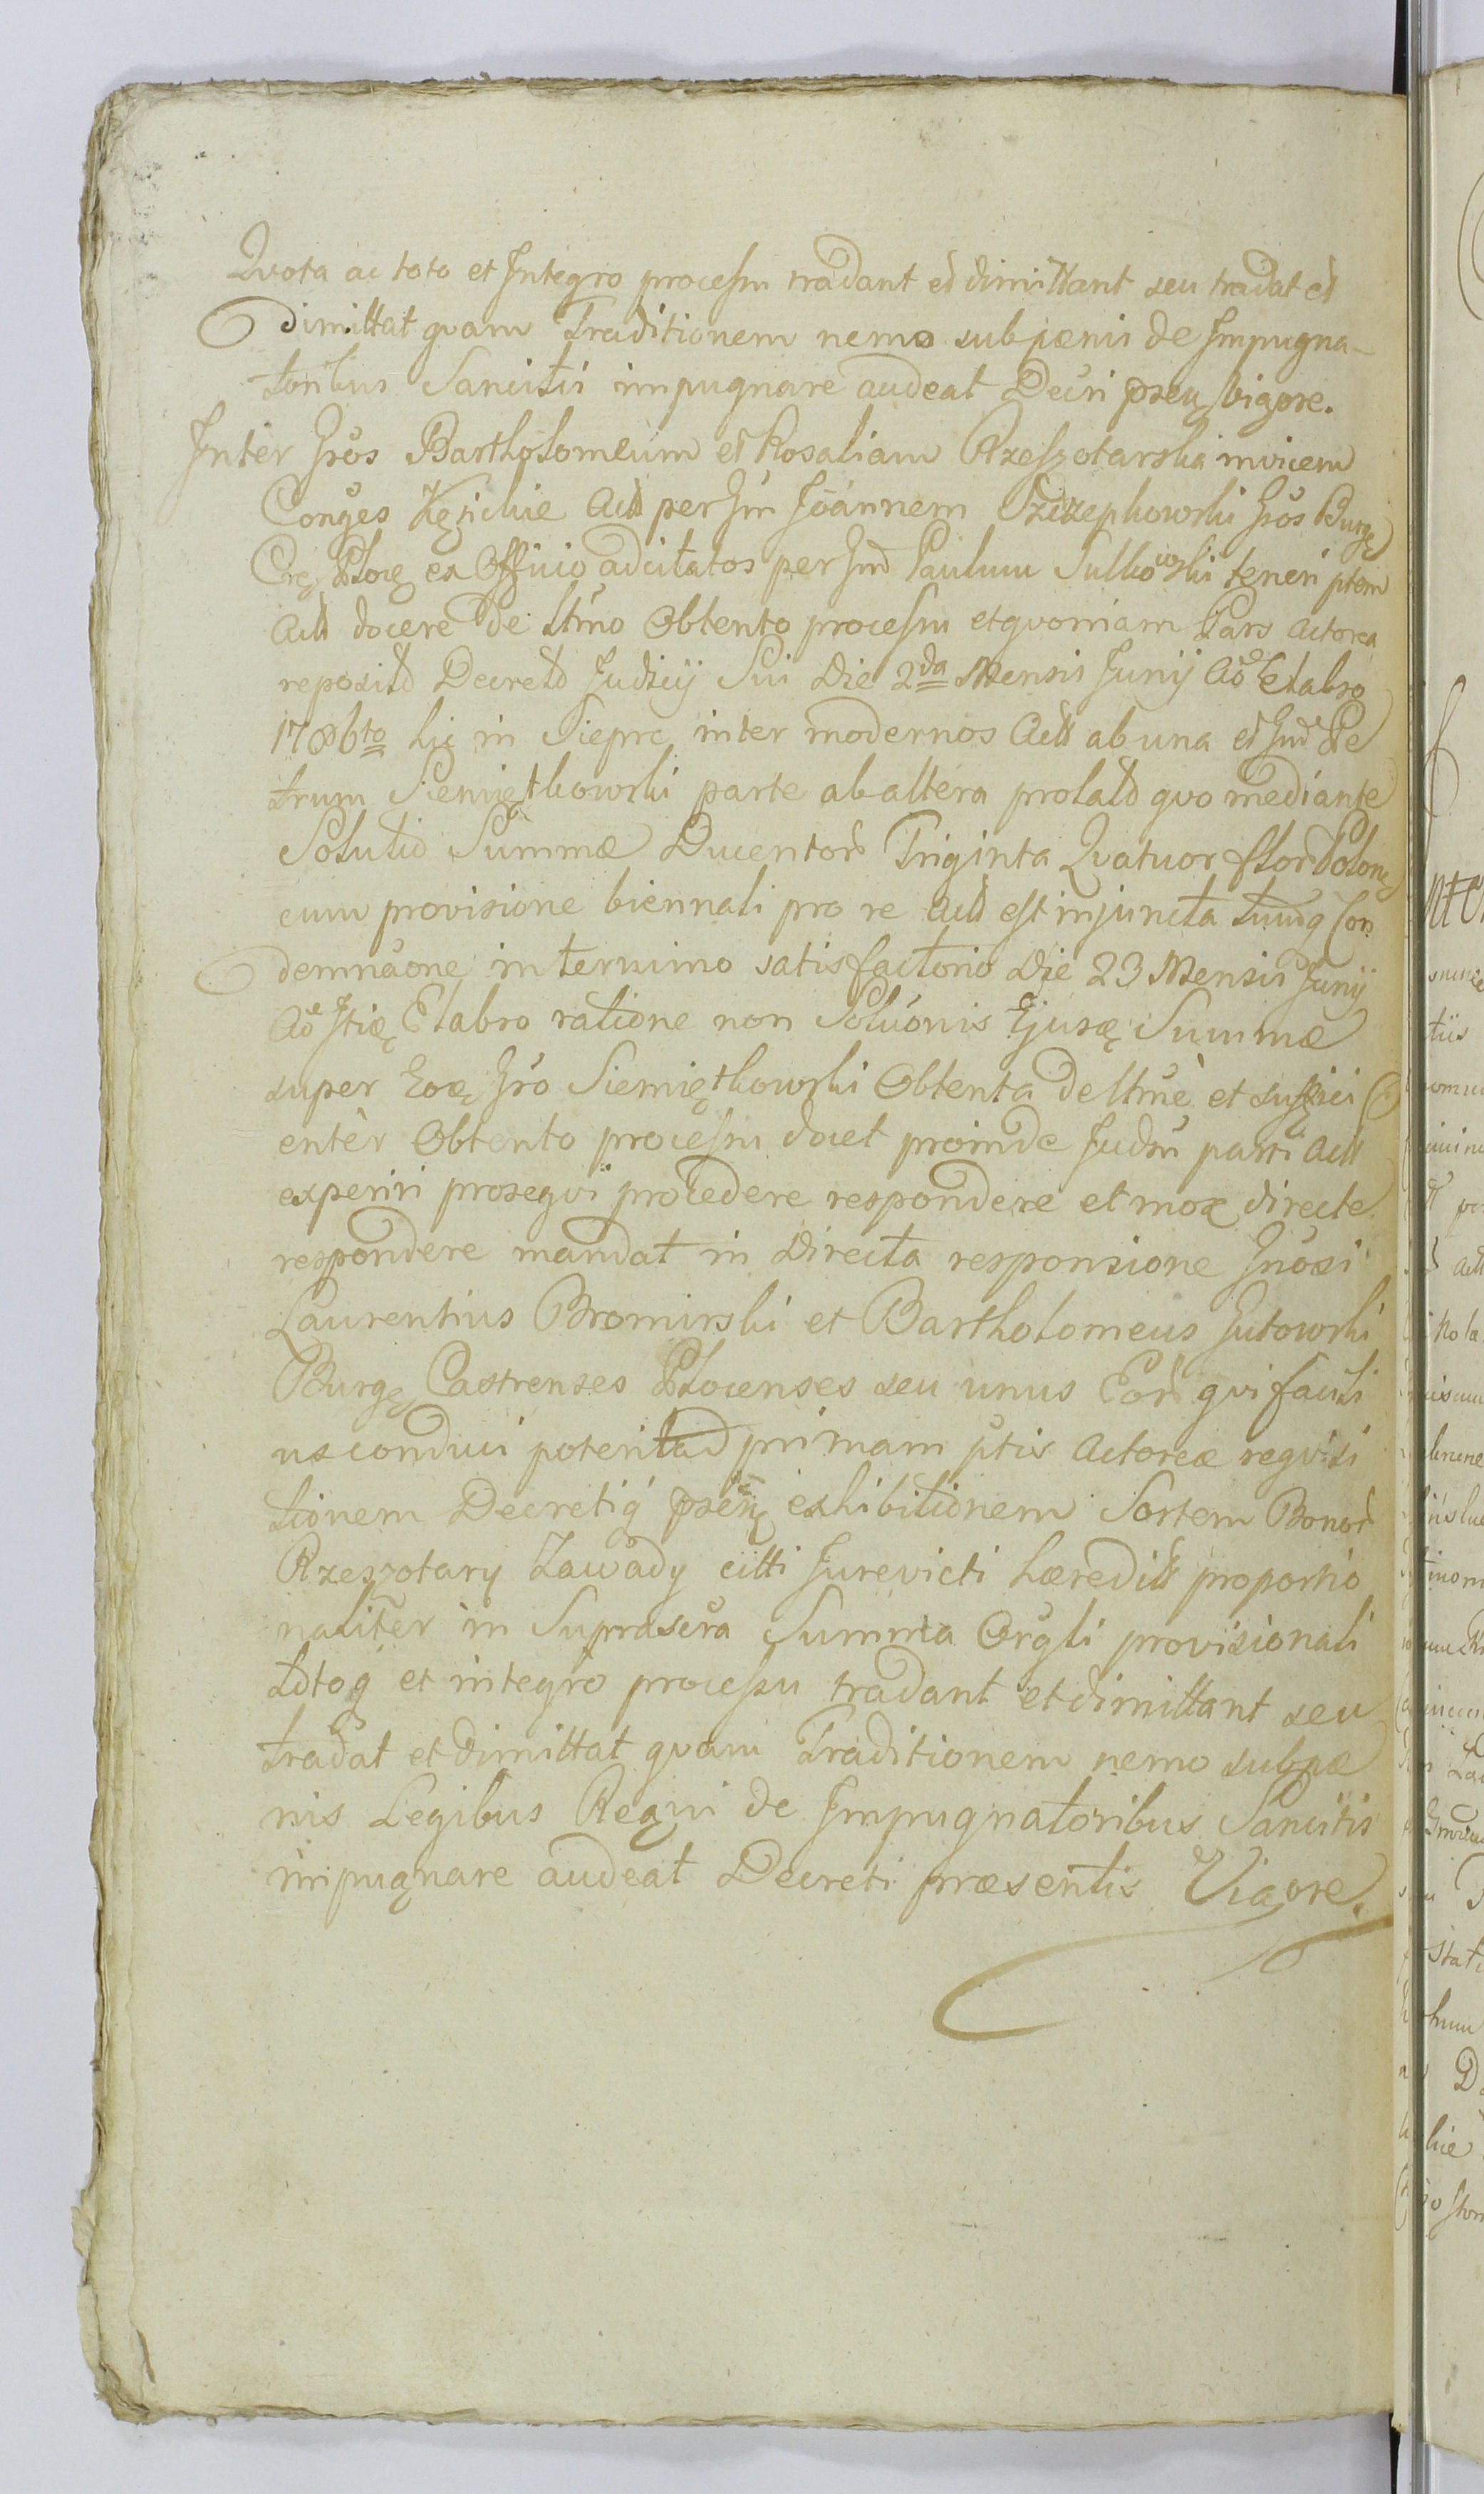 Qvota ac toto et Integro processu tradant et dimittant seu tradat et
dimittat qvam Traditionem nemo sub pænis de Impugna-
toribus Sancitis impugnare audeat Decri pseñ vigore.
Inter Gños Bartholomeum et Rosaliam Rzeszotarskia invicem
Conges Kęsickie Act per Gñ Joannem Szczepkowski Gños Burg
Cre Ploc ex Officio adcitatos per Gnd Paulum Sulkowski teneri ptem
Act docere de ltmo Obtento processu et qvoniam Pars Actorea
reposito Decreto Judicij Sui Die 2da Mensis Junij Ao Elabso
1786to hic in Sieprc inter modernos Act ab una et Gnd Pe
trum Siemiętkowski parte ab altera prolato qvo mediante
Solutio Summæ Ducentor Triginta Qvatuor flor Polon
cum provisione biennali pro re Act est injuncta tumq Con
demnaone in termino satisfactorio Die 23 Mensis Junij
Ao Elabso ratione non Soluonis Ejusd Summæ
super Eod Gño Siemiętkowski Obtenta de ltme et suffici
enter Obtento processu docet proinde Judm parti Act
experiri prosegvi procedere respondere et mox directe
respondere mandat in directa responsione Gnosi
Laurentius Bromirski et Bartholomeus Gutowski
Burg Castrenses Plocenses seu unus Eor qvi facili
us conduci poterit ad primam ptis Actoreæ reqvisi
tionem Decretiq pseñ exhibitionem Sortem Bonor
Rzeszotary Zawady citti Jurevicti hæredit proportio
naliter in Suprascra Summa Orgli provisionali
totoq et integro processu tradant et dimittant seu
tradat et dimittat qvam Traditionem nemo sub pæ
nis Legibus Regni de Impugnatoribus Sancitis
impugnare audeat Decreti præsentis Vigore.